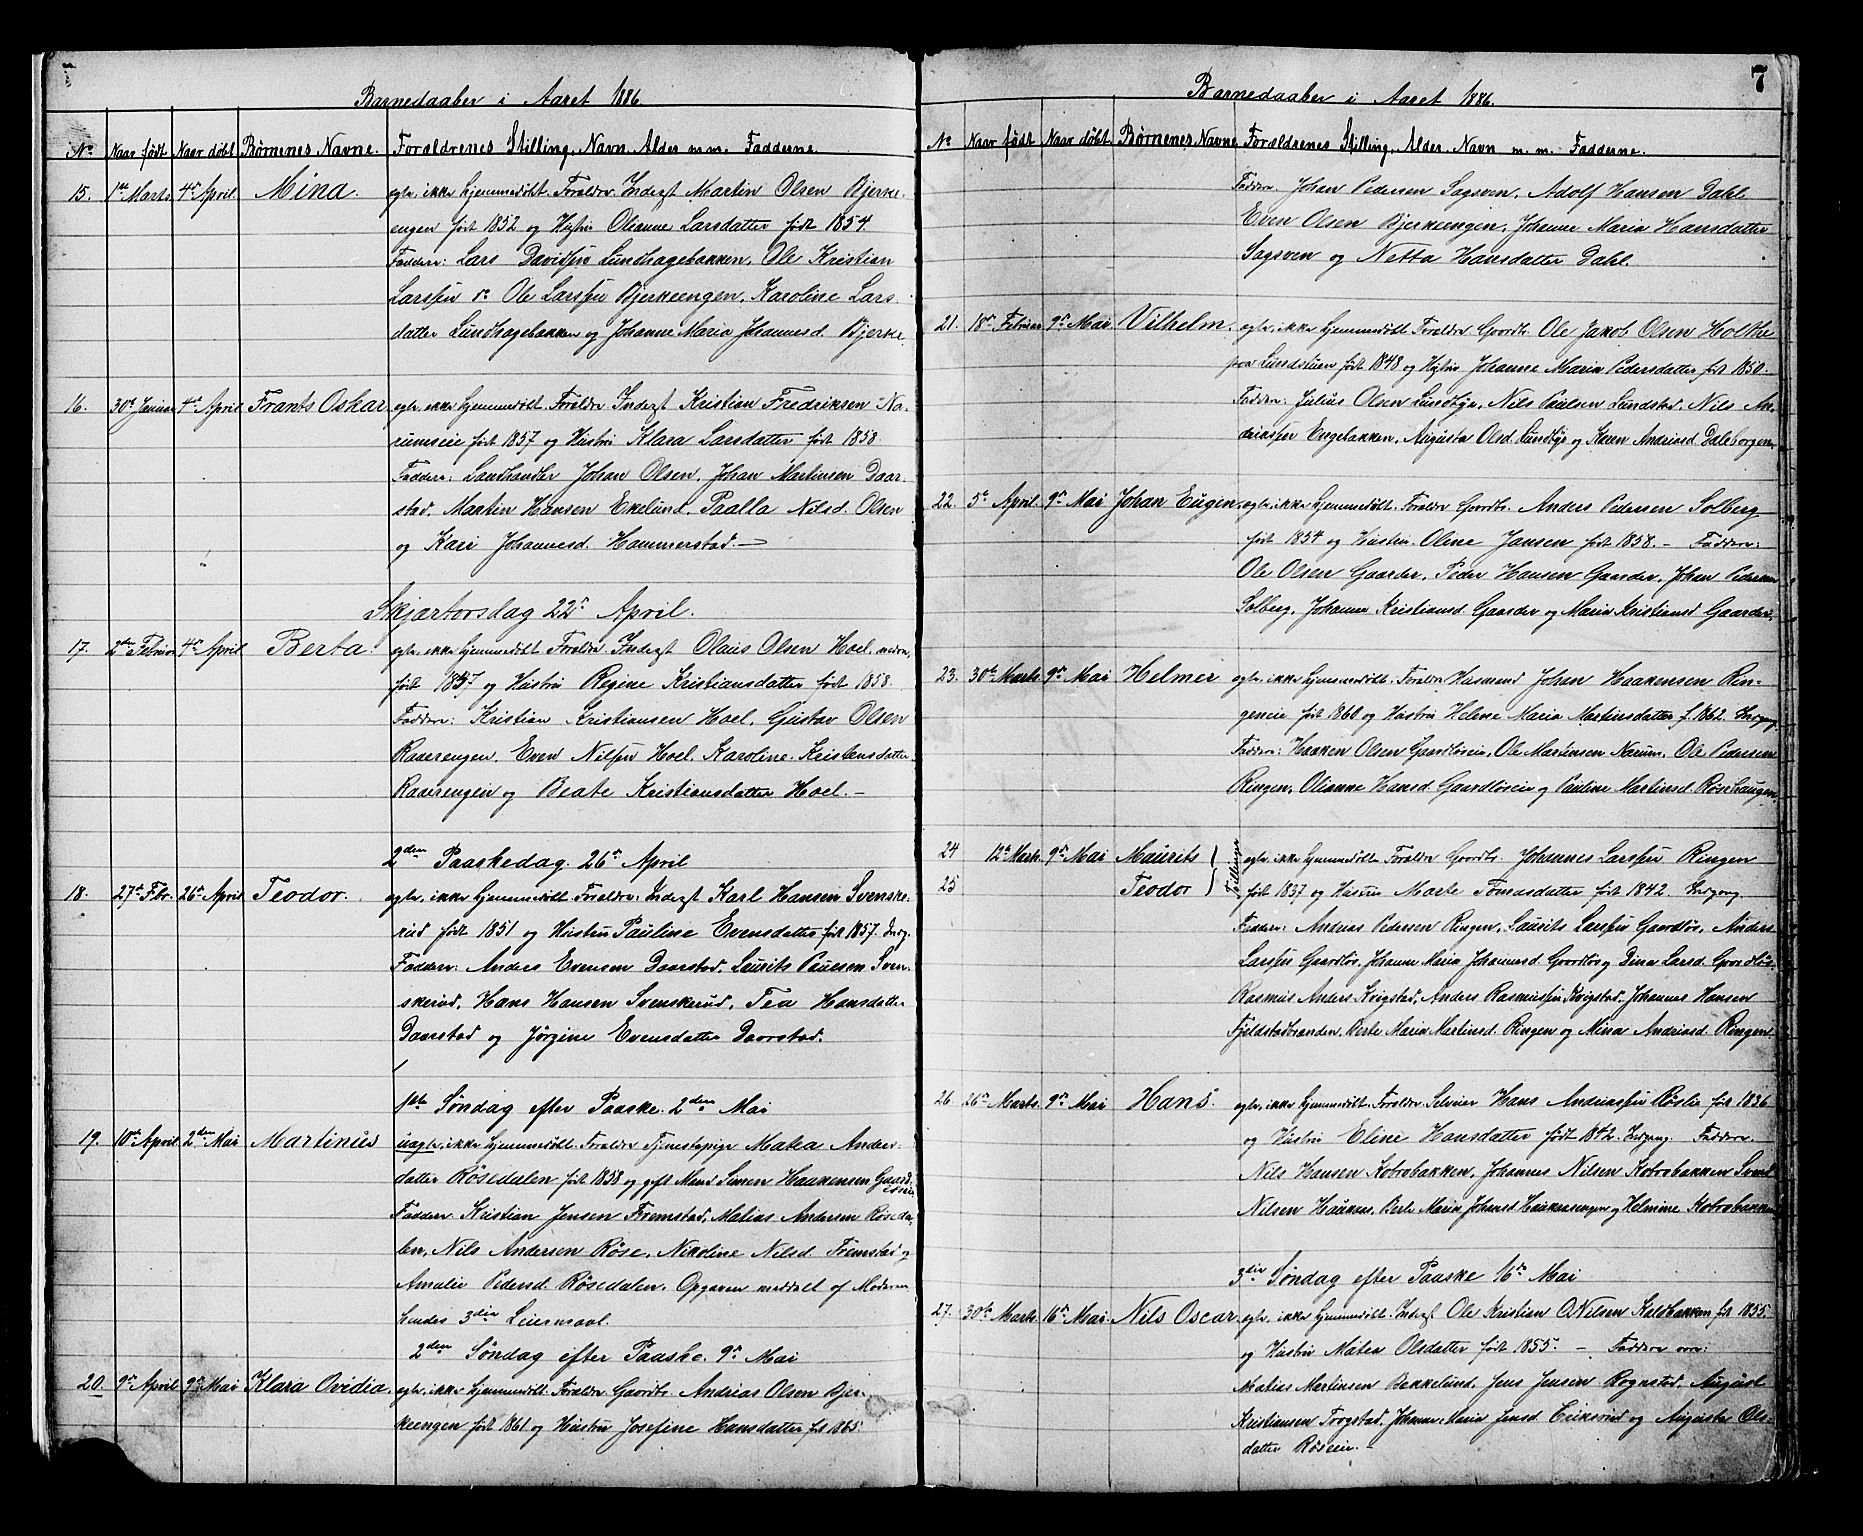 Barnedaaber i Aaret 1886.
No. Naar født Naar døbt Børnenes Navne. Forældrenes Stilling, Navn, Alder m.m. Fadderne.
15. 1ste Marts 4de April Mina. egte, ikke hjemmedøbt. Forældre Inderst Martin Olsen Bjerke-
engen født 1852 og Hustru Oleanne Larsdatter født 1854.
Faddere: Lars Davidsen Lundhagebakken, Ole Kristian
Larssen Ole Larssen Bjerkeengen, Karoline Lars-
datter Lundhagebakken og Johanne Maria Johannesd. Bjerke.
16. 30te Januar 4de April Frants Oskar egte, ikke hjemmedøbt. Forældre Inderst Kristian Fredriksen Na-
rumseie født 1857 og Hustru Klara Larsdatter født 1858.
Faddere: Landhandler Johan Olsen, Johan Martinsen Daar-
stad, Martin Hansen Ekelund, Paalla Nilsd. Olsen
og Kari Johannesd. Hammerstad. —
Skjærtorsdag 22de April.
17. 2den Februar 4de April Berta. egte, ikke hjemmedøbt. Forældre Inderst Olaus Olsen Hoel, nedre,
født 1857 og Hustru Regine Kristiansdatter født 1858.
Faddere: Kristian Kristiansen Hoel, Gustav Olsen
Raaerengen, Even Nilssen Hoel, Karoline Kristensdatter
Raaerengen og Beate Kristiansdatter Hoel. —
2den Paaskedag 26de April
18. 27de Febr. 26de April Teodor. egte, ikke hjemmedøbt. Forældre: Inderst Karl Hansen Svenske-
rud født 1851 og Hustru Pauline Evensdatter født 1857. Indg.
Faddere: Anders Evensen Daarstad, Laurits Paulsen Sven-
skerud, Hans Hansen Svenskerud, Tea Hansdatter
Daarstad og Jørgine Evensdatter Daarstad.
1ste Søndag efter Paaske. 2den Mai
19. 10de April 2den Mai Martinus uegte, ikke hjemmedøbt. Forældre Tjenestepige Matea Anders-
datter Rösedalen født 1858 og gift Mand Simen Haakensen Gaard-
løseie
Faddere Kristian Jensen Fremstad, Matias Andersen Röseda-
len, Nils Andersen Röse, Nikoline Nilsd. Fremstad og
Amalie Pedersd. Rösedalen. Opgaven meddelt af Moderen
hendes 3die Leiermaal.
2den Søndag efter Paaske. 9de Mai
20. 9de April 9de Mai Klara Ovidia. egte, ikke hjemmedøbt. Forældre Gaardb. Andrias Olsen Bjer-
keengen født 1861 og Hustru Josefine Hansdatter født 1865.
7
Barnedaaber i Aaret 1886.
No Naar født Naar døbt. Børnenes Navne Forældrenes Stilling, Alder. Navn m.m. Fadderne.
Faddere: Johan Pedersen Sagsven, Adolf Hansen Dahl
Even Olsen Bjerkeengen, Johanne Maria Hansdatter
Sagsven og Netta Hansdatter Dahl.
21. 18de Februar 9de Mai Vilhelm. egte, ikke hjemmedøbt. Forældre Gaardb. Ole Jakob Olsen Holthe
paa Lundstuen født 1848 og Hustru Johanne Maria Pedersdatter født 1850.
Faddere: Julius Olsen Lundbye, Nils Paulsen Lundstad, Nils An-
driassen Engebakken, Augusta Olsd. Lundbye og Karen Andriasd. Daleborgen.
22. 5te April. 9de Mai Johan Eugen. egte, ikke hjemmedøbt. Forældre Gaardb. Anders Pedersen Solberg
født 1854 og Hustru Oline Jansen født 1858. — Faddere:
Ole Olsen Gaarder, Peder Hansen Gaarder, Johan Pedersen
Solberg, Johanne Kristiansd. Gaarder og Maria Kristiansd. Gaarder.
23. 30te Marts 9de Mai Helmer egte, ikke hjemmedøbt. Forældre Husmand Johan Haakensen Rin-
geneie født 1860 og Hustru Helene Maria Martinsdatter f. 1862. Indgang.
Faddere: Haaken Olsen Gaardløseie, Ole Martinsen Narum, Ole Pedersen
Ringen, Olianne Hansd. Gaardløseie og Pauline Martinsd. Rösehaugen.
24 12te Marts 9de Mai Maurits
25 Teodor Tvillinger egte, ikke hjemmedøbt. Forældre Gaardb. Johannes Larssen Ringen
født 1837 og Hustru Marte Tomasdatter født 1842. Indgang.
Faddere: Andrias Pedersen Ringen, Laurits Larssen Gaardløs, Anders
Larssen Gaardløs, Johanne Maria Johannesd. Gaardløs og Dina Larsd. Gaardløs.
Rasmus Anders Kvigstad, Anders Rasmussen Kvigstad, Johannes Hansen
Fjeldstadbraaden, Berte Maria Martinsd. Ringen og Mina Andriasd. Ringen.
26. 26de Marts. 9de Mai Hans. egte, ikke hjemmedøbt. Forældre Selveier Hans Andriassen Röslie født 1836
og Hustru Eline Hansdatter født 1842. Indgang. Faddere:
Nils Hansen Kobrobakken, Johannes Nilsen Kobrobakken Svend
Nilsen Haakaas, Berte Maria Johansd. Haakaasengen og Helmine Kobrobakken
3die Søndag efter Paaske 16de Mai
27. 30te Marts. 16de Mai. Nils Oscar. egte, ikke hjemmedøbt. Inderst Ole Kristian O. Nilsen Koldbakken født 1855.
og Hustru Matea Olsdatter født 1855. — Faddere ere:
Matias Martinsen Bekkelund, Jens Jensen Rognstad, August
Kristiansen Trogstad, Johanne Maria Jensd. Eriksrud og Augusta Ols-
datter Röseeie. —